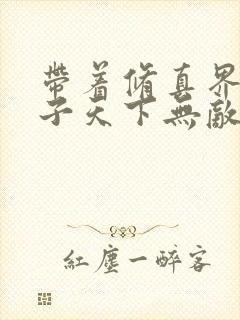 帶着修真界
子天下無敵
紅塵一醉客